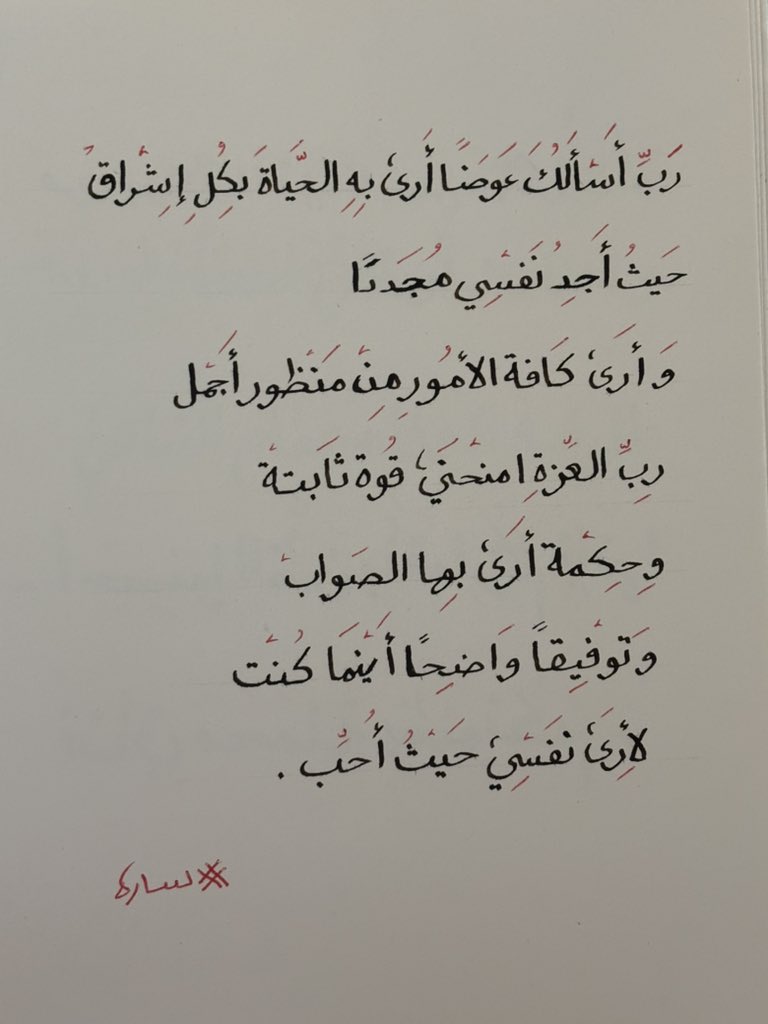 رَبِّ أَسْأَلُكَ عَوَضًا أَرىٰ بِهِ الحَّيَاةَ بِكُلِ إِشِْراقُ
حَيثُ أَجِدُ نَفَسِْي مُجَددًا
وَ أرَىٰ كَافة الأمُورِ مِنْ مَنْظور أجَمْل
رِبِّ العَّزةِ امنحْنَيٰ قُوة ثاَبتةْ
وِحِكِْمة أرَىٰ بِها الصَوابْ
وَتَوفْيِقاً وَاضِحًا أَيْنمَا كُنْت
لأِرىَٰ نفَسِْيٰ حَيَثُْ أُحبّ .
#ساره